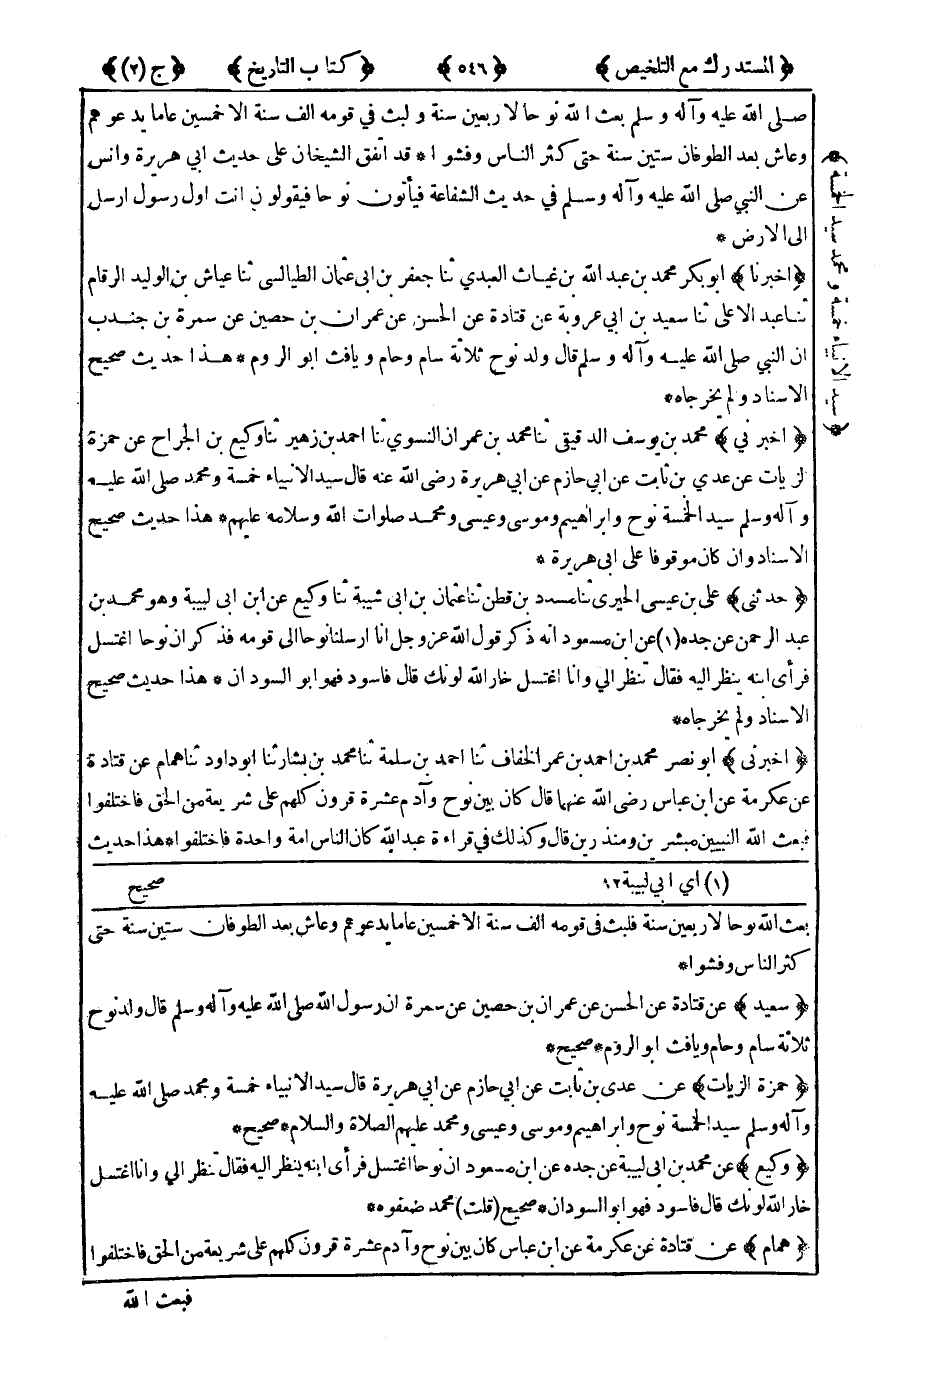 ﴿ المستدرك مع التلخيص ﴾ ﴿ ٥٤٦ ﴾ ﴿ كتاب التاريخ ﴾ ﴿ ج (٢) ﴾
صلى الله عليه وآله وسلم بعث الله نوحا لاربعين سنة ولبث في قومه الف سنة الا خمسين عاما يدعوهم
وعاش بعد الطوفان ستين سنة حتى كثر الناس وفشوا * قد اتفق الشيخان على حديث ابي هريرة وانس
عن النبي صلى الله عليه وآله وسلم في حديث الشفاعة فيأتون نوحا فيقولون انت اول رسول ارسل
الى الارض *
﴿ اخبرنا ﴾ ابو بكر محمد بن عبد الله بن غياث العبدي ثنا جعفر بن ابى عثمان الطيالسى ثنا عياش بن الوليد الرقام
ثنا عبد الاعلى ثنا سعيد بن ابي عروبة عن قتادة عن الحسن عن عمران بن حصين عن سمرة بن جندب
ان النبي صلى الله عليه وآله وسلم قال ولد نوح ثلاثة سام وحام ويافث ابو الروم * هذا حديث صحيح
الاسناد ولم يخرجاه *
﴿ اخبرني ﴾ محمد بن يوسف الدقيقى ثنا محمد بن عمران النسوي ثنا احمد بن زهير ثنا وكيع بن الجراح عن حمزة
الزيات عن عدي بن ثابت عن ابي حازم عن ابي هريرة رضى الله عنه قال سيد الانبياء خمسة ومحمد صلى الله عليه
وآله وسلم سيد الخمسة نوح وابراهيم وموسى وعيسى ومحمد صلوات الله وسلامه عليهم * هذا حديث صحيح
الاسناد وان كان موقوفا على ابى هريرة *
﴿ حدثنى ﴾ على بن عيسى الحيرى ثنا مسدد بن قطن ثنا عثمان بن ابى شيبة ثنا وكيع عن ابن ابى لبيبة وهو محمد بن
عبد الرحمن عن جده (١) عن ابن مسعود انه ذكر قول الله عز وجل انا ارسلنا نوحا الى قومه فذكر ان نوحا اغتسل
فرأى ابنه ينظر اليه فقال تنظر الي وانا اغتسل خار الله لونك قال فاسود فهو ابو السودان * هذا حديث صحيح
الاسناد ولم يخرجاه *
﴿ اخبرنى ﴾ ابو نصر محمد بن احمد بن عمر الخفاف ثنا احمد بن سلمة ثنا محمد بن بشار ثنا ابو داود ثنا همام عن قتادة
عن عكرمة عن ابن عباس رضى الله عنهما قال كان بين نوح وآدم عشرة قرون كلهم على شريعة من الحق فاختلفوا
فبعث الله النبيين مبشرين ومنذرين قال وكذلك في قراءة عبد الله كان الناس امة واحدة فاختلفوا * هذا حديث
صحيح
(١) اي ابي لبيبة ١٢
بعث الله نوحا لاربعين سنة فلبث فى قومه الف سنة الا خمسين عاما يدعوهم وعاش بعد الطوفان ستين سنة حتى
كثر الناس وفشوا *
﴿ سعيد ﴾ عن قتادة عن الحسن عن عمران بن حصين عن سمرة ان رسول الله صلى الله عليه وآله وسلم قال ولد نوح
ثلاثة سام وحام ويافث ابو الروم * صحيح *
﴿ حمزة الزيات ﴾ عن عدى بن ثابت عن ابي حازم عن ابي هريرة قال سيد الانبياء خمسة ومحمد صلى الله عليه
وآله وسلم سيد الخمسة نوح وابراهيم وموسى وعيسى ومحمد عليهم الصلاة والسلام * صحيح *
﴿ وكيع ﴾ عن محمد بن ابى لبيبة عن جده عن ابن مسعود ان نوحا اغتسل فرأى ابنه ينظر اليه فقال تنظر الي وانا اغتسل
خار الله لونك قال فاسود فهو ابو السودان * صحيح (قلت) محمد ضعفوه *
﴿ همام ﴾ عن قتادة عن عكرمة عن ابن عباس كان بين نوح وآدم عشرة قرون كلهم على شريعة من الحق فاختلفوا
فبعث الله
﴿ سيد الانبياء خمسة ومحمد سيد الخمسة ﴾